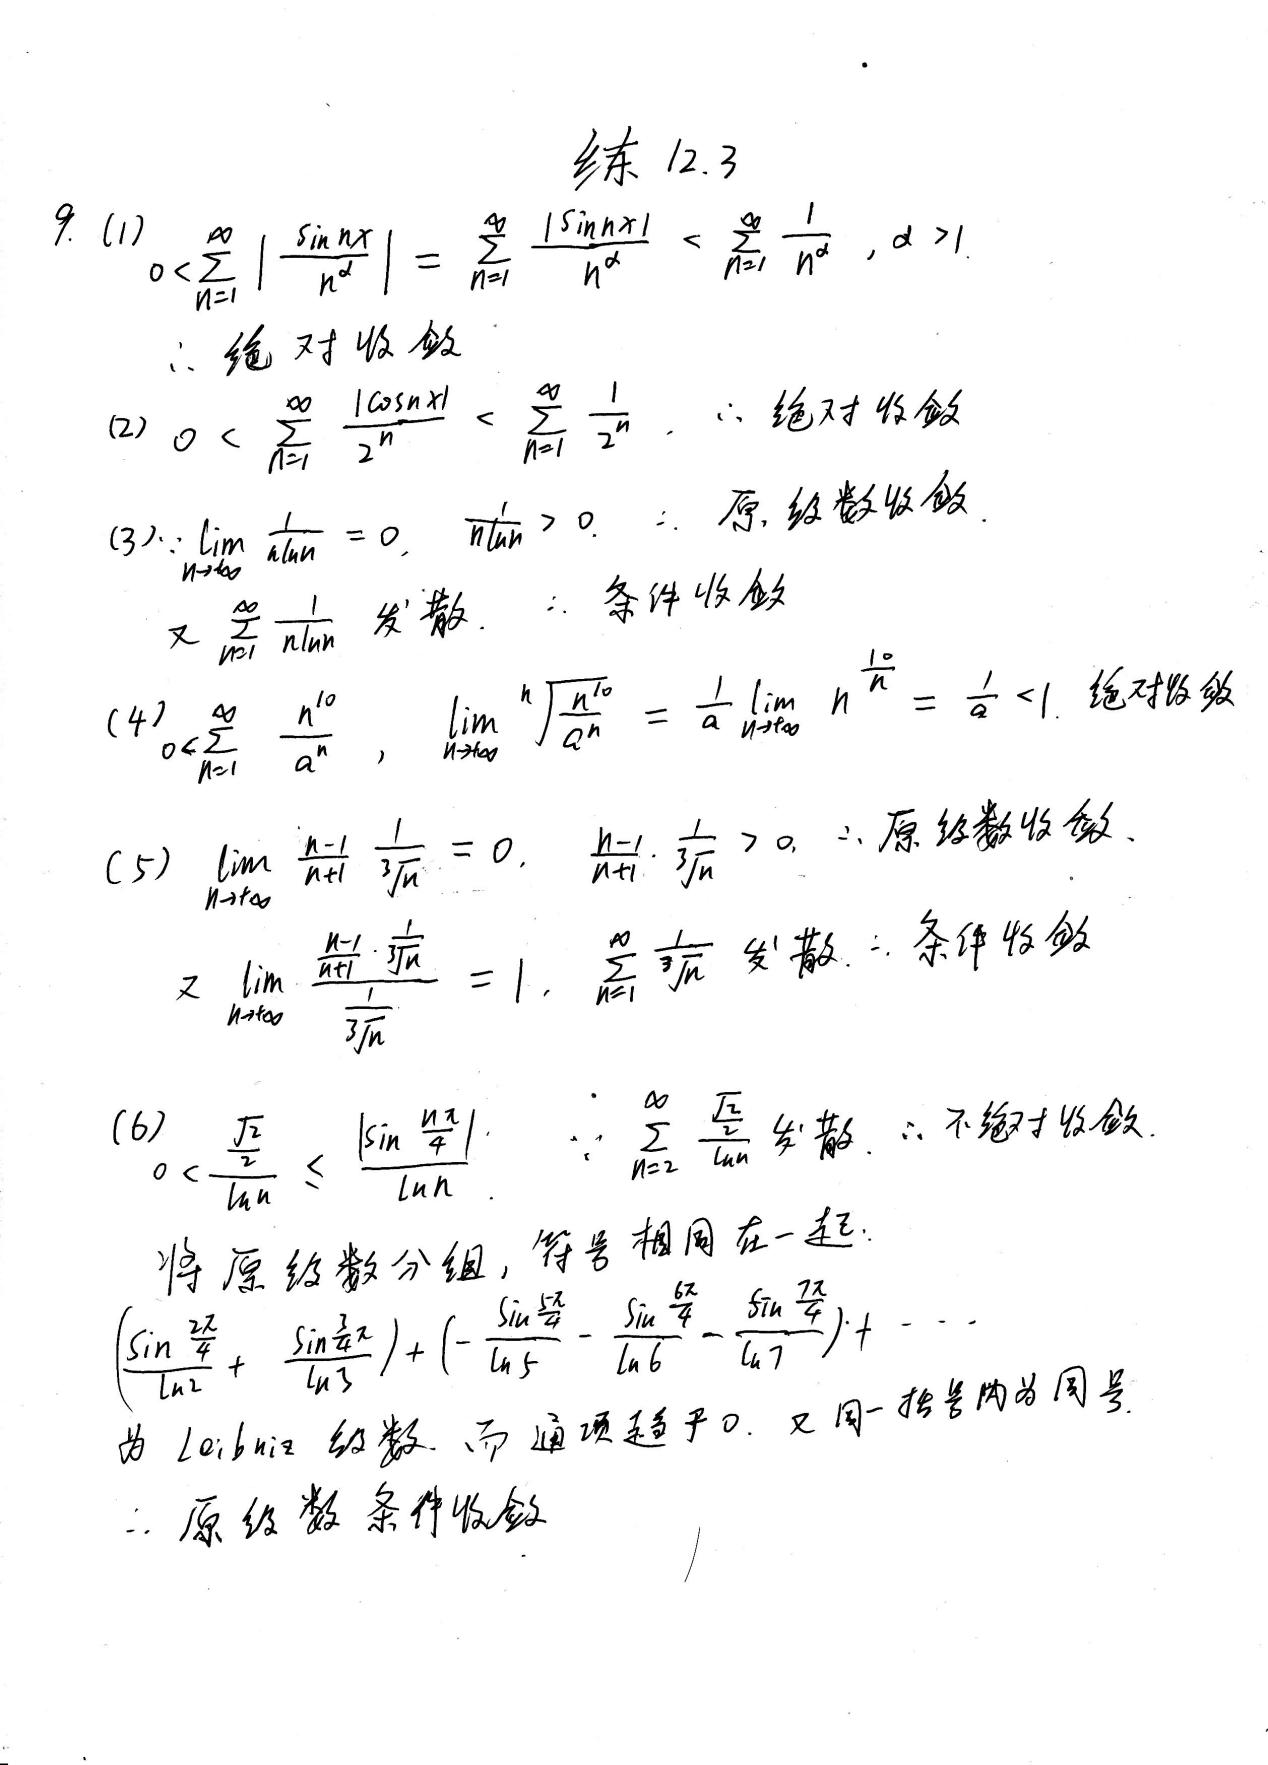 练 12.3
9. (1) 0 < ∑_{n=1}^{∞} | sin nx / n^α | = ∑_{n=1}^{∞} |sin nx| / n^α < ∑_{n=1}^{∞} 1/n^α , α > 1.
∴ 绝对收敛
(2) 0 < ∑_{n=1}^{∞} |cos nx| / 2^n < ∑_{n=1}^{∞} 1/2^n . ∴ 绝对收敛
(3) ∵ lim_{n→+∞} 1/(n ln n) = 0, 1/(n ln n) > 0. ∴ 原级数收敛.
又 ∑_{n=1}^{∞} 1/(n ln n) 发散. ∴ 条件收敛
(4) 0 < ∑_{n=1}^{∞} n^{10}/a^n , lim_{n→+∞} ⁿ√(n^{10}/a^n) = 1/a lim_{n→+∞} n^{10/n} = 1/a < 1. 绝对收敛
(5) lim_{n→+∞} (n-1)/(n+1) 1/³√n = 0. (n-1)/(n+1) · 1/³√n > 0, ∴ 原级数收敛.
又 lim_{n→+∞} ((n-1)/(n+1) · 1/³√n) / (1/³√n) = 1. ∑_{n=1}^{∞} 1/³√n 发散. ∴ 条件收敛
(6) 0 < (√2/2)/ln n ≤ |sin nπ/4| / ln n. ∵ ∑_{n=2}^{∞} (√2/2)/ln n 发散. ∴ 不绝对收敛.
将原级数分组, 符号相同在一起.
(sin 2π/4 / ln2 + sin 3/4 π / ln3) + (- sin 5π/4 / ln5 - sin 6π/4 / ln6 - sin 7π/4 / ln7) + ····
为 Leibniz 级数. 而通项趋于0. 又同一括号内为同号.
∴ 原级数条件收敛